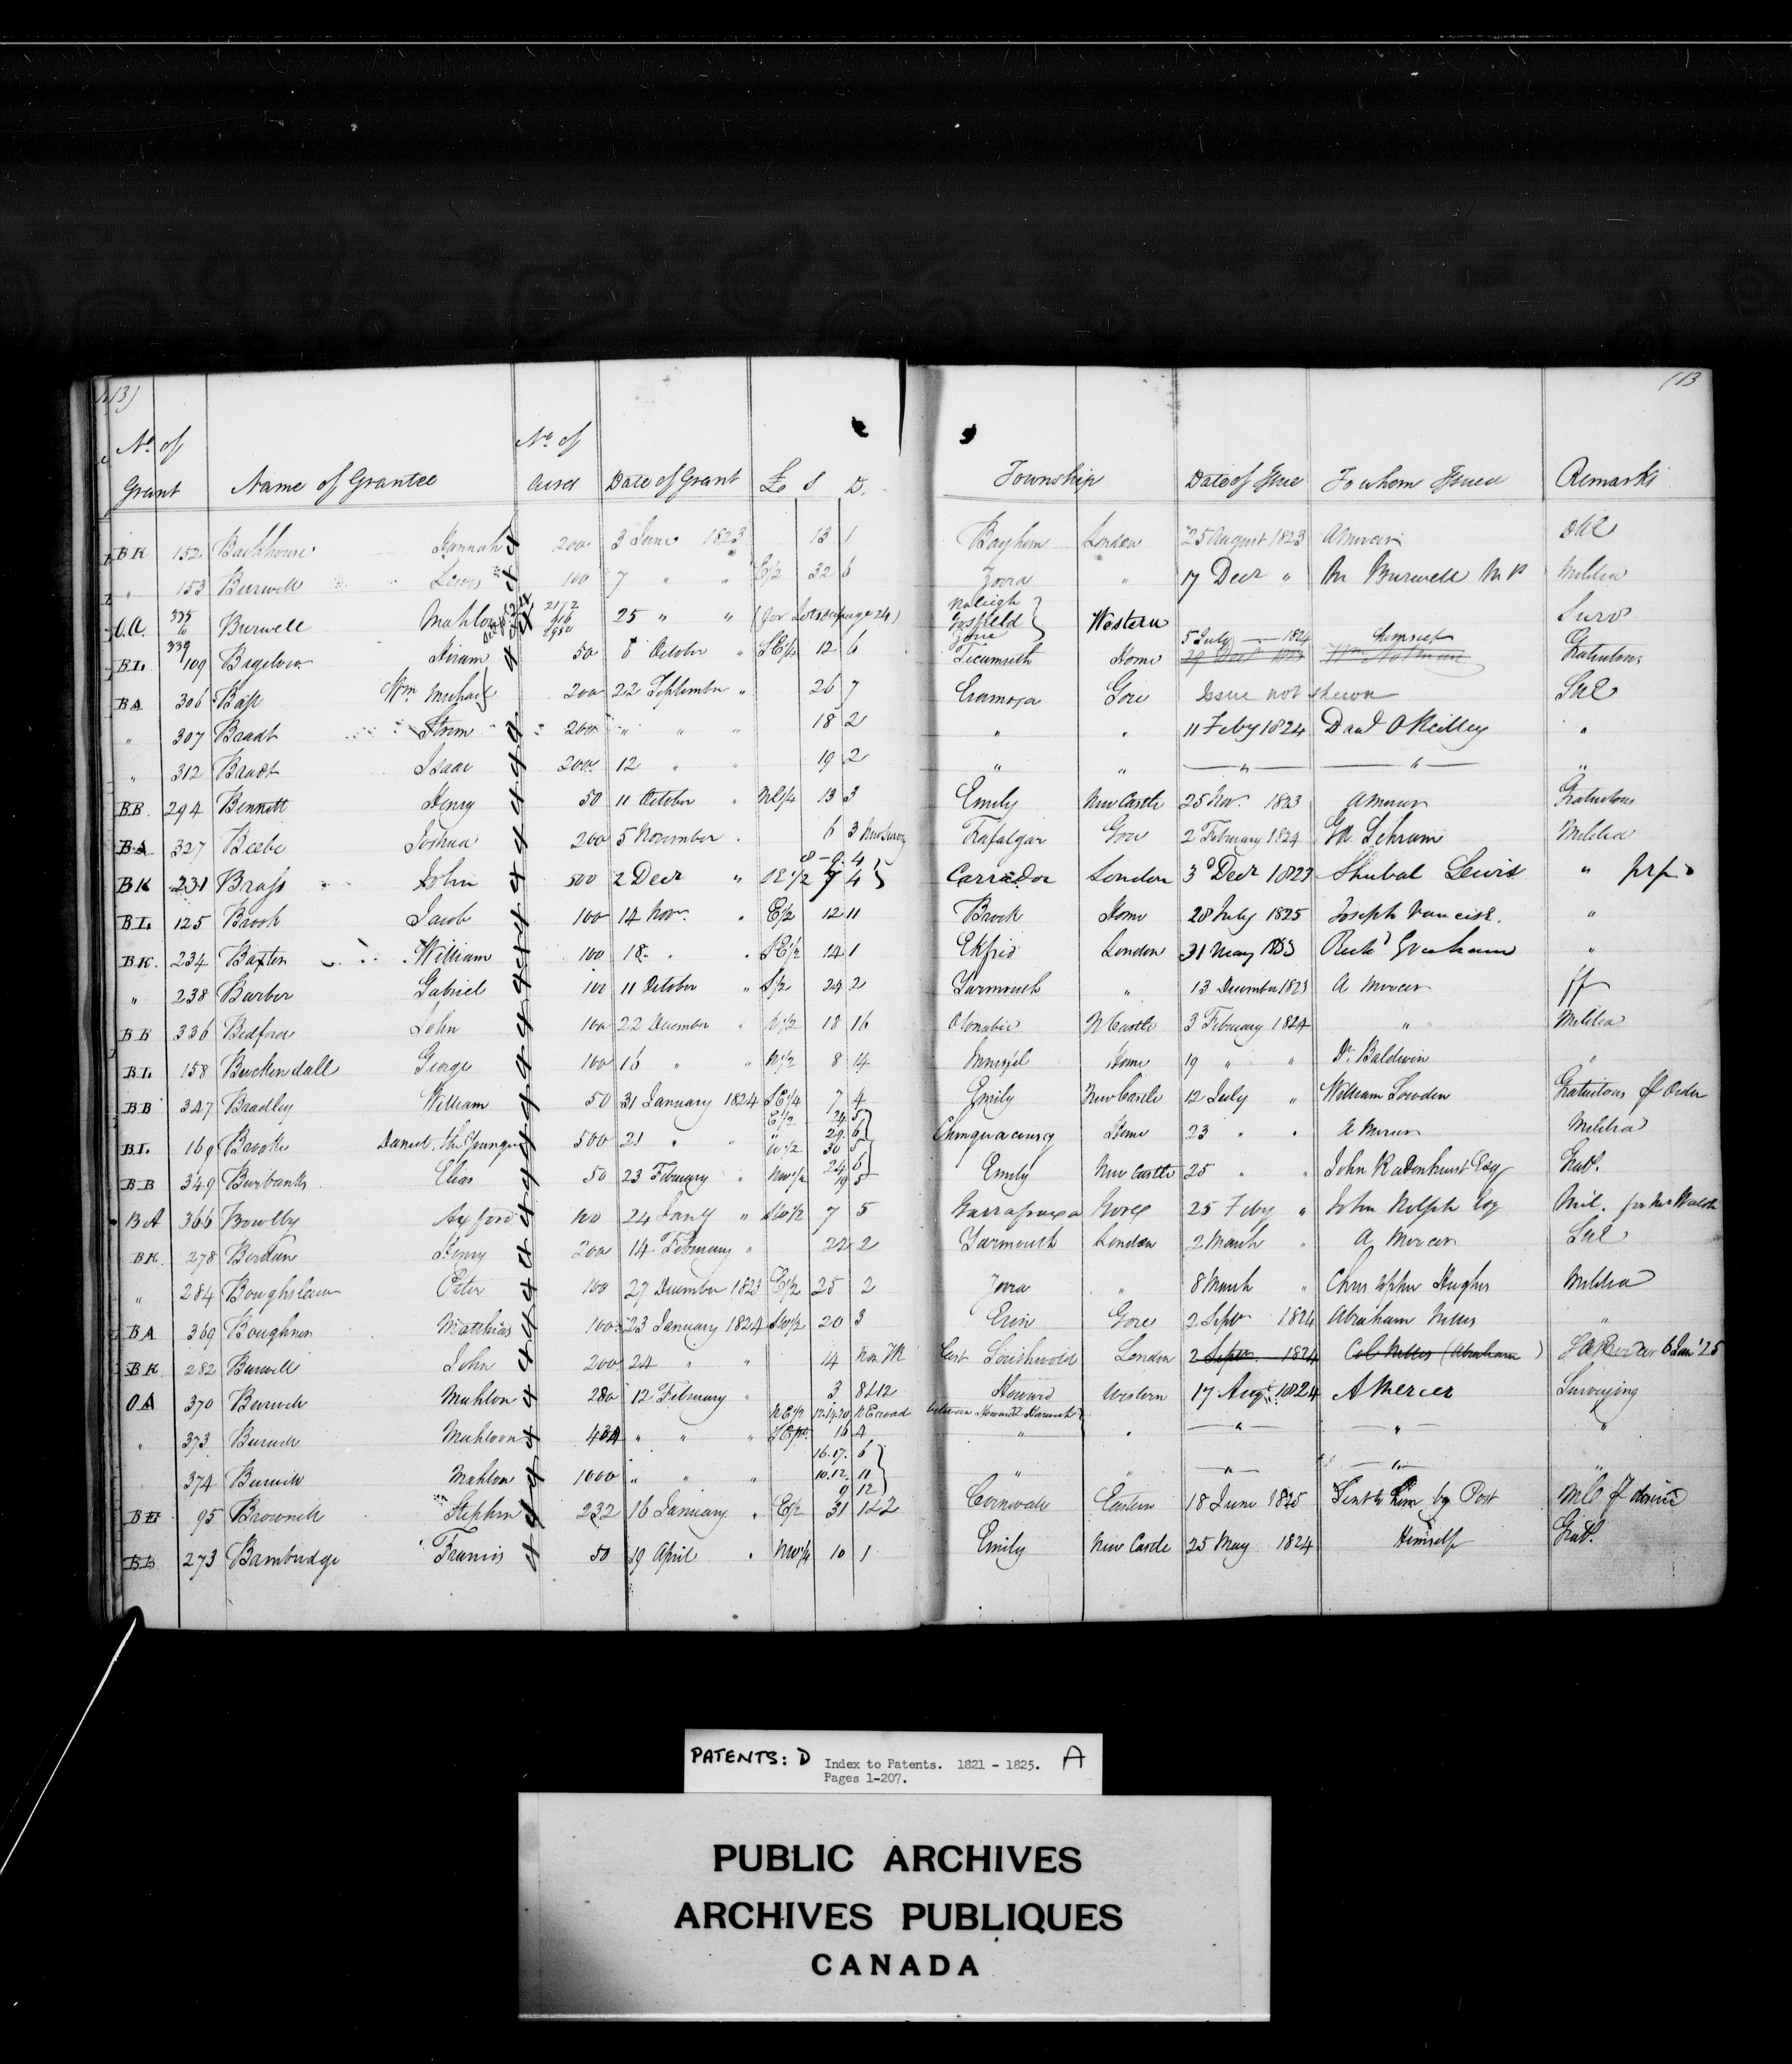 (13) (13
No of No of
Grant Name of Grantee Acres Date of Grant £ S D. Township Date of Issue To whom Issued Remarks
BK 152 Backhouse Hannah 4 200 3 June 1823 13 1 Bayham London 25 August 1823 A Mercer
" 153 Burwell Lewis 4 100 7 " " E½ 32 6 Zorra " 17 Decr " M Burwell M P Militia
O.A. Burwell Mahlon 25 " " (for Lots see page 24) Raleigh Gosfield Zone } Western Surv
BL 109 Hiram 4 50 8 October " 12 6 Tecumseth Home 5 July 1824 himself Gratuitous
BA 306 Bass Wm Michael 200 22 September " 26 7 Eramosa Gore Issue not shewn
" 307 Bradt Storm 4 200 " " " 18 2 " " 11 Feby 1824 Danl O Reilley "
" 312 Bradt Isaac 4 200 12 " " 19 2 " " " " "
BB. 294 Bennett Henry 4 50 11 October " 13 3 Emily New Castle 25 Nov. 1823 A Mercer Gratuitous
BA 327 Beebe Joshua 4 200 5 November . 6 3 New Survey Trafalgar Gore 2 February 1824 Militia
8 - 9. 4
BK 231 Brass John 4 500 2 Decr " 7 4 } Carradoc London 3d Decr 1823 Shubal Lewis "
BL. 125 Brook Jacob 4 100 14 Nov. " E½ 12 11 Brock Home 28 July 1825 Joseph "
BK. 234 Baxter William 4 100 18 " . 14 1 Ekfrid London 31 May Richd Graham "
" 238 Barber Gabriel 4 100 11 October " S½ 24 2 Yarmouth " 13 December 1823 A Mercer
BB 336 Bedford John 4 100 22 December " ½ 18 16 Otonabee N Castle 3 February 1824 " Militia
BL. 158 Buckendall George 4 100 16 " " N½ 8 14 Innisfil Home 19 " " Dr. Baldwin "
BB 347 Bradley William 4 50 31 January 1824 SE¼ 7 4 Emily New Castle 12 July " William Lowden Gratuitous Order
BL. 169 Brooke Daniel, the Younger 4 500 21 " " Chinguacousy Home 23 " " A Mercer Militia
BB 349 Burbanks Elias 4 50 23 February " 19 5 Emily New Castle 25 " " John Radenhurst Esq Grats.
BA 366 Bowlby Axford 4 100 24 Jany " 7 5 Garrafraxa Gore 25 Feby " John Rolph Esq Mil.
BK. 278 Bordan Henry 4 200 14 February " 22 2 Yarmouth London 2 March " A Mercer
" 284 Boughslaw Peter 4 100 27 December 1823 E½ 25 2 Zorra " 8 March " Christopher Hughes Militia
BA 369 Boughner Matthias 4 100 23 January 1824 20 3 Erin Gore 2 Sept 1824 Abraham Nelles "
BK 282 Burwell John 4 200 24 " " 14 Southwold London 2 Septr. 1824 Col. Nelles (Abraham)
OA 370 Burwell Mahlon 4 280 12 February " 3 8 & 12 Howard Western 17 Augt. 1824 A Mercer Surveying
between Howard & Harwich
" 373 Burwell Mahlon 4 " " " 16 A " " " " "
16.17. 6
" 374 Burwell Mahlon 4 1000 " " " 10.12. 11 " " " " "
9 12 }
95 Brownell Stephen 4 232 16 January " E½ 31 1 & 2 Cornwall Eastern 18 June 1825 Sent to him by Post
BB 273 Bambridge Francis 4 50 19 April " NW¼ 10 1 Emily New Castle 25 May 1824 Himself Grats.
PATENTS: D Index to Patents. 1821 - 1825. A
Pages 1-207.
PUBLIC ARCHIVES
ARCHIVES PUBLIQUES
CANADA